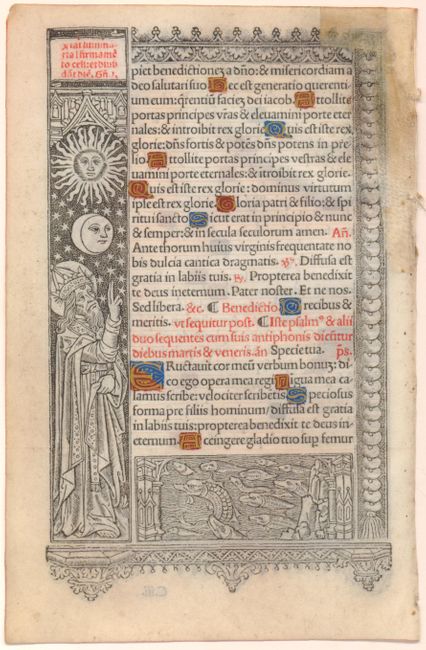 Fiat lumina-
ria ī firmamē
to celi: et diuidāt
diē. Gn̄. 1.
piet benedictionez a dño: & misericordiam a
deo salutari suo Hec est generatio querenti-
um eum: q̄rentiū faciez dei iacob. Attollite
portas principes vr̄as & eleuamini porte eter
nales: & introibit rex glorie. Quis est iste rex
glorie: dn̄s fortis & potēs dn̄s potens in pre-
lio. Attollite portas principes vestras & ele
uamini porte eternales: & itroibit rex glorie.
Quis est iste rex glorie: dominus virtutum
ipse est rex glorie. Gloria patri & filio: & spi
ritui sancto Sicut erat in principio & nunc
& semper: & in secula seculorum amen. Añ.
Ante thorum huius virginis frequentate no
bis dulcia cantica dragmatis. Diffusa est
gratia in labiis tuis. Propterea benedixit
te deus ineternum. Pater noster. Et ne nos.
Sed libera. &c. Benedictio. Precibus &
meritis. vt sequitur post. Iste psalmᵒ & alii
duo sequentes cum suis antiphonis dicūtur
diebus martis & veneris. an Specie tua. p̄s.
ERuctauit cor meū verbum bonuz: di-
co ego opera mea regi Ligua mea ca
lamus scribe: velociter scribētis Speciosus
forma pre filiis hominum/ diffusa est gratia
in labiis tuis: propterea benedixit te deus in
eternum. Accingere gladio tuo sup femur